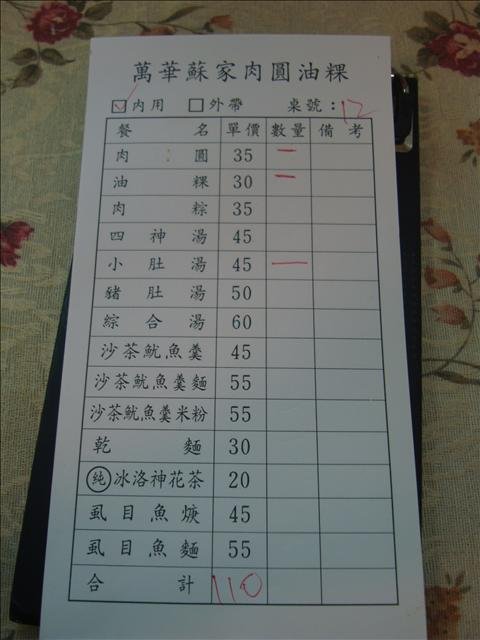 萬華蘇家肉圓油粿
☑內用 ☐外帶 桌號:12
餐名 單價 數量 備考
肉圓 35 一
油粿 30 一
肉粽 35
四神湯 45
小肚湯 45 一
豬肚湯 50
綜合湯 60
沙茶魷魚羹 45
沙茶魷魚羹麵 55
沙茶魷魚羹米粉 55
乾麵 30
純冰洛神花茶 20
虱目魚焿 45
虱目魚麵 55
合計 110